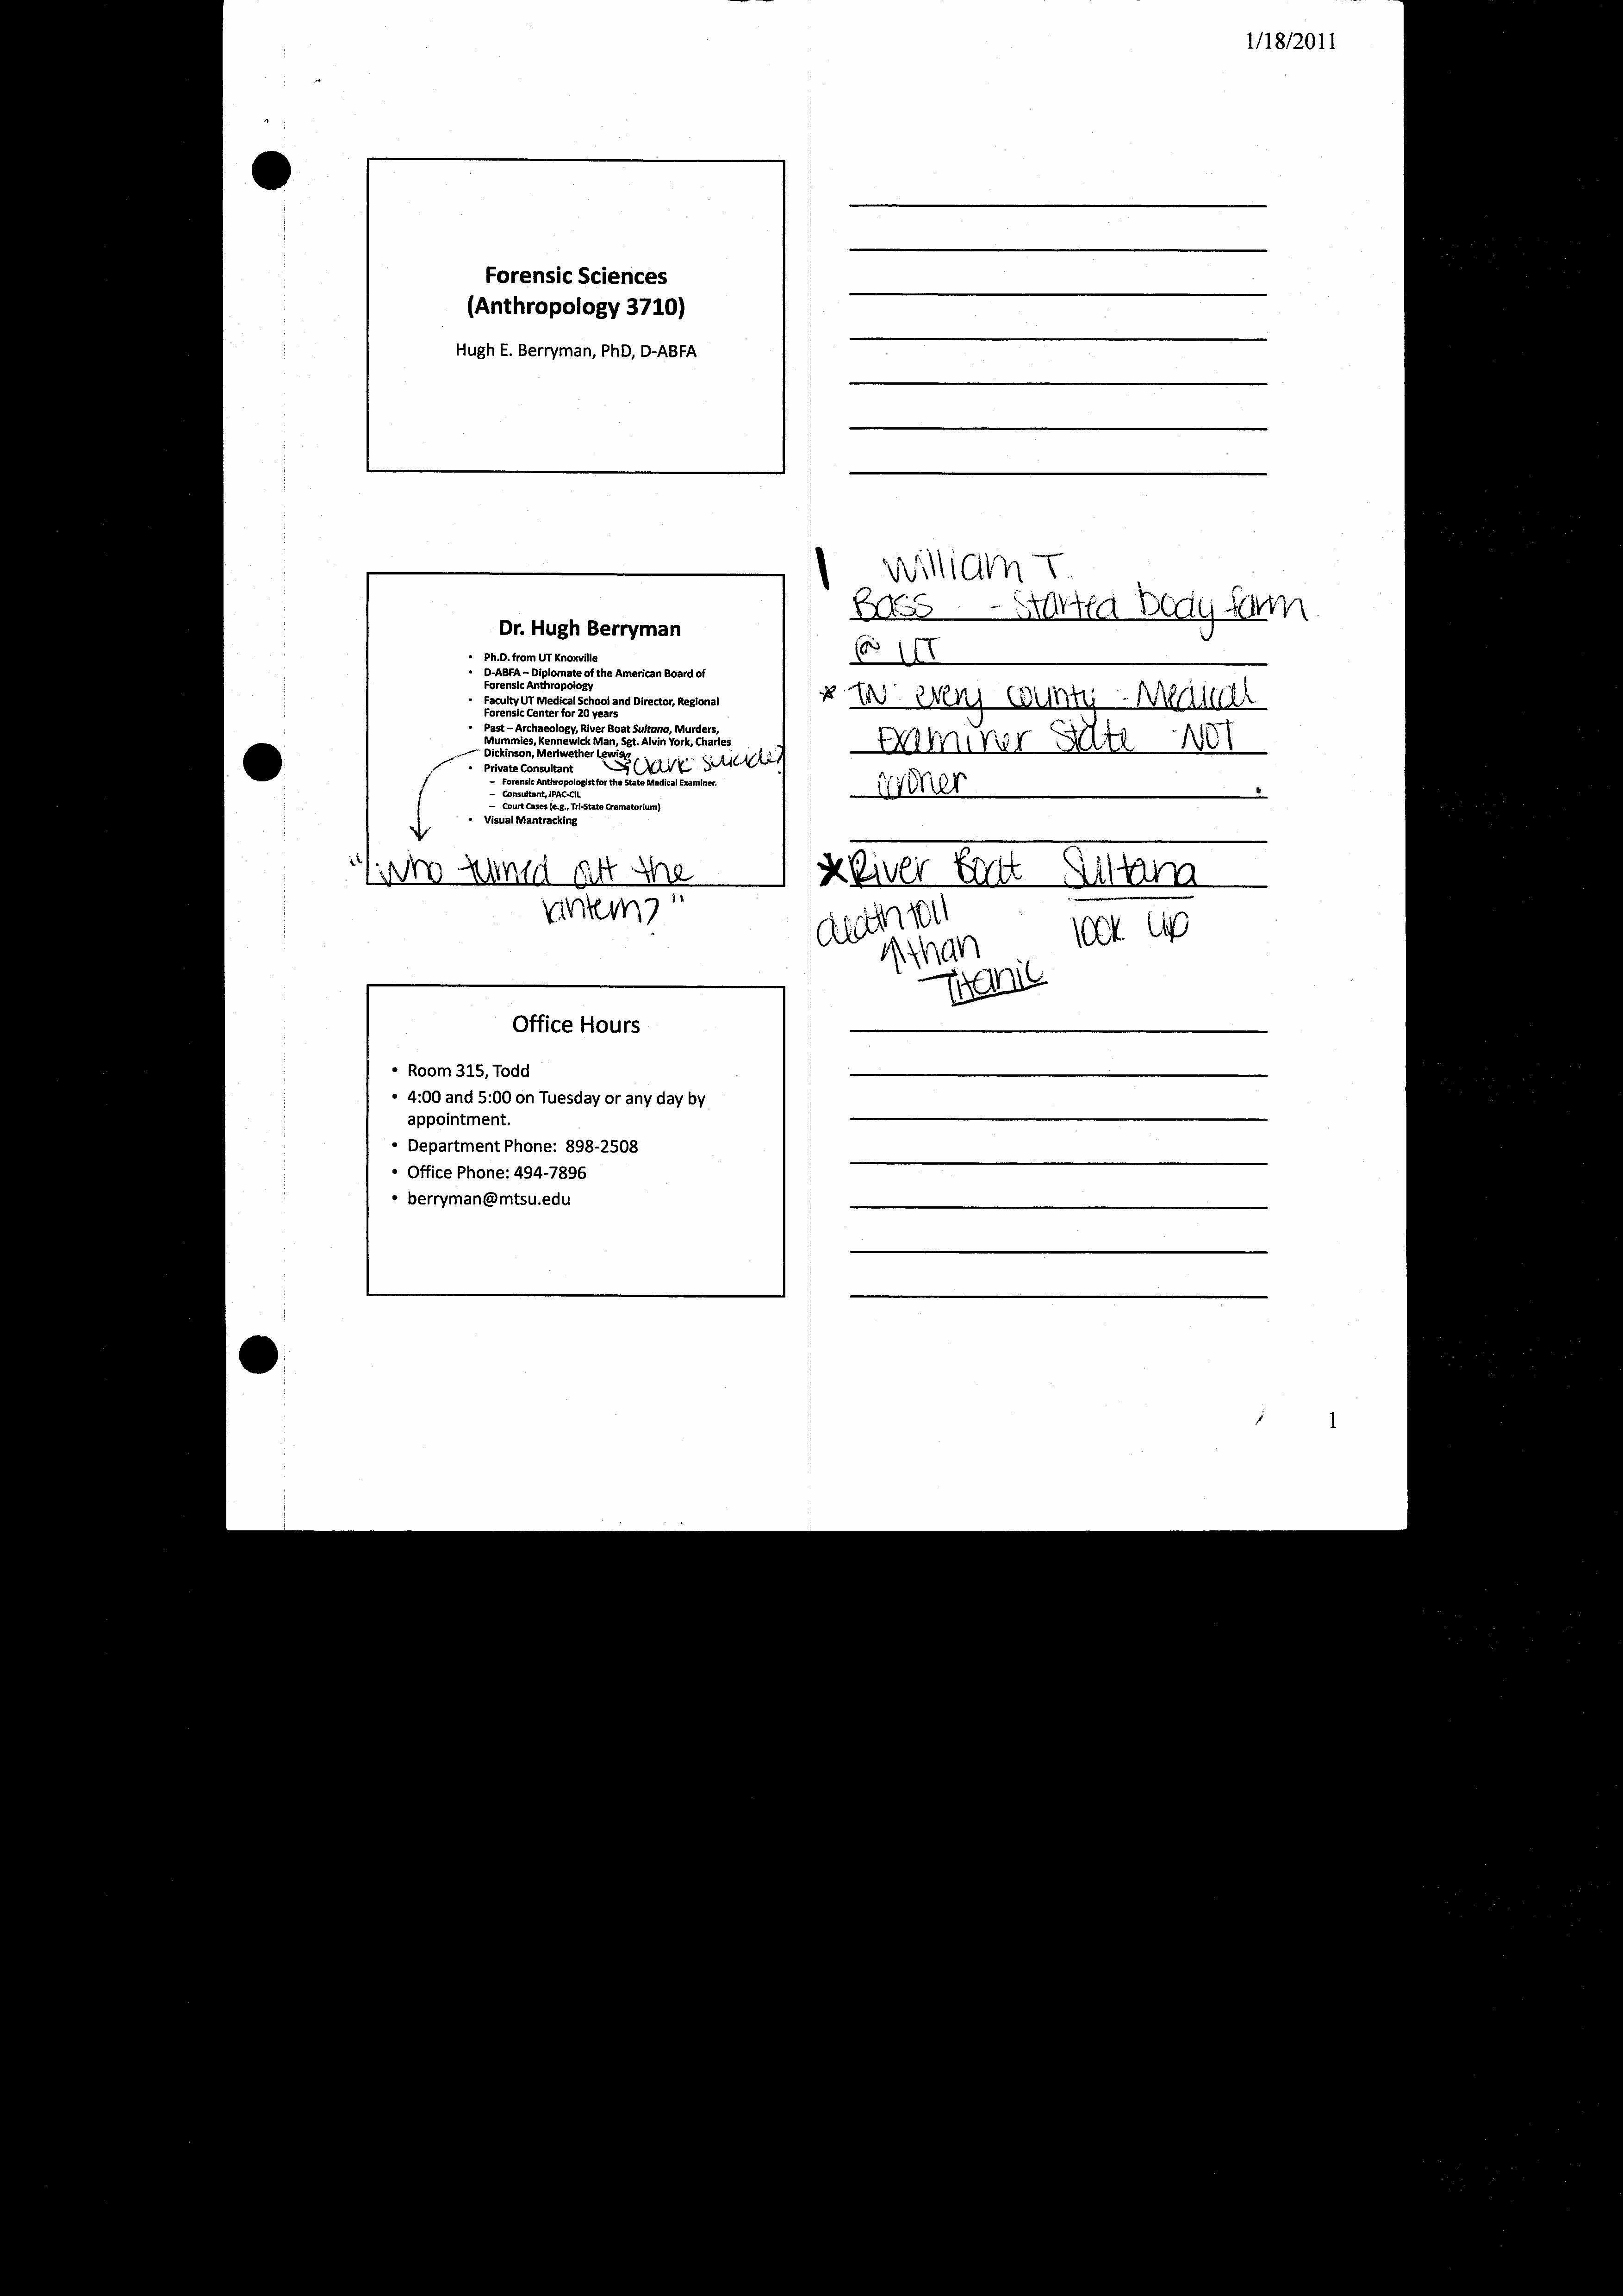 1/18/2011
Forensic Sciences
(Anthropology 3710)
Hugh E. Berryman, PhD, D-ABFA
Dr. Hugh Berryman
• Ph.D. from UT Knoxville
• D-ABFA – Diplomate of the American Board of
Forensic Anthropology
• Faculty UT Medical School and Director, Regional
Forensic Center for 20 years
• Past – Archaeology, River Boat Sultana, Murders,
Mummies, Kennewick Man, Sgt. Alvin York, Charles
Dickinson, Meriwether Lewis
& Clark suicide?
• Private Consultant
– Forensic Anthropologist for the State Medical Examiner.
– Consultant, JPAC-CIL
– Court Cases (e.g., Tri-State Crematorium)
• Visual Mantracking
"who turned out the
lantern?"
William T.
Bass - Started body farm
@ UT
* TN every county - Medical
Examiner State - NOT
coroner
* River Boat Sultana
look up
death toll
↑ than
Titanic
Office Hours
• Room 315, Todd
• 4:00 and 5:00 on Tuesday or any day by
appointment.
• Department Phone: 898-2508
• Office Phone: 494-7896
• berryman@mtsu.edu
1